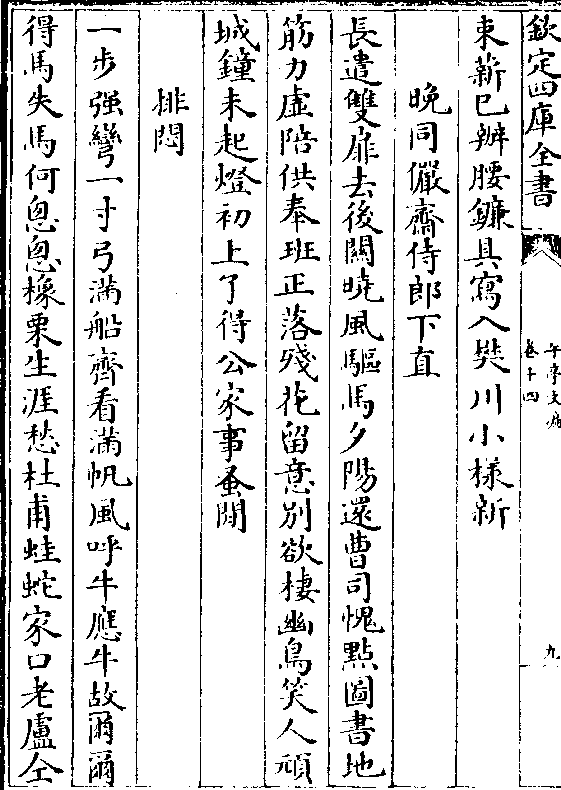 欽定四庫全書
午亭文編
卷十四
九
束薪已辦腰鐮具寫入樊川小様新
晚同儼齋侍郎下直
長遣雙扉去後關曉風驅馬夕陽還曹司愧點圖書地
筋力虚陪供奉班正落殘花留意别欲棲幽鳥笑人頑
城鐘未起燈初上了得公家事蚤閒
排悶
一步强彎一寸弓滿船齊看滿帆風呼牛應牛故爾爾
得馬失馬何怱怱橡栗生涯愁杜甫蛙蛇家口老盧仝